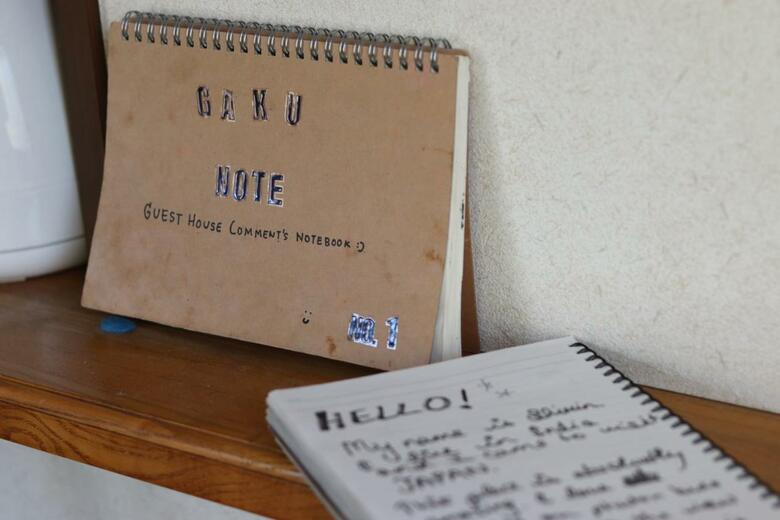 GAKU
NOTE
GUEST HOUSE COMMENT'S NOTEBOOK :)
NO. 1
HELLO!
My name is
live in India
came to visit
JAPAN.
This place is absolutely
I love